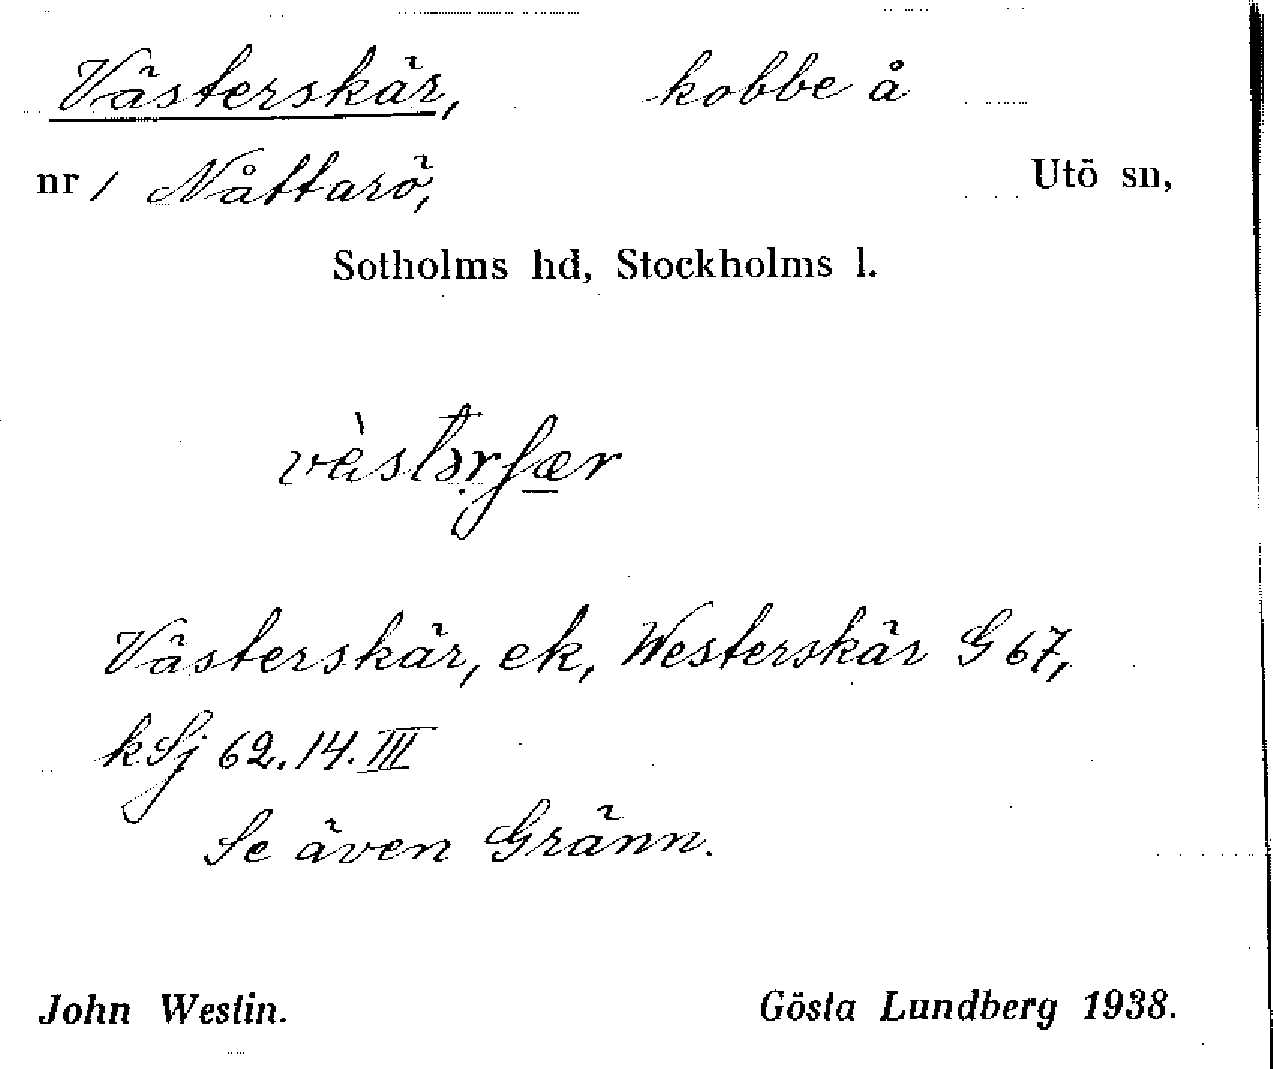 Västerskär, kobbe å
nr 1 Nåttarö, Utö sn,
Sotholms hd, Stockholms l.
Västerskär, ek, Westerskär G 67,
kSj 62.14.III
Se även Gränn.
John Westin. Gösta Lundberg 1938.